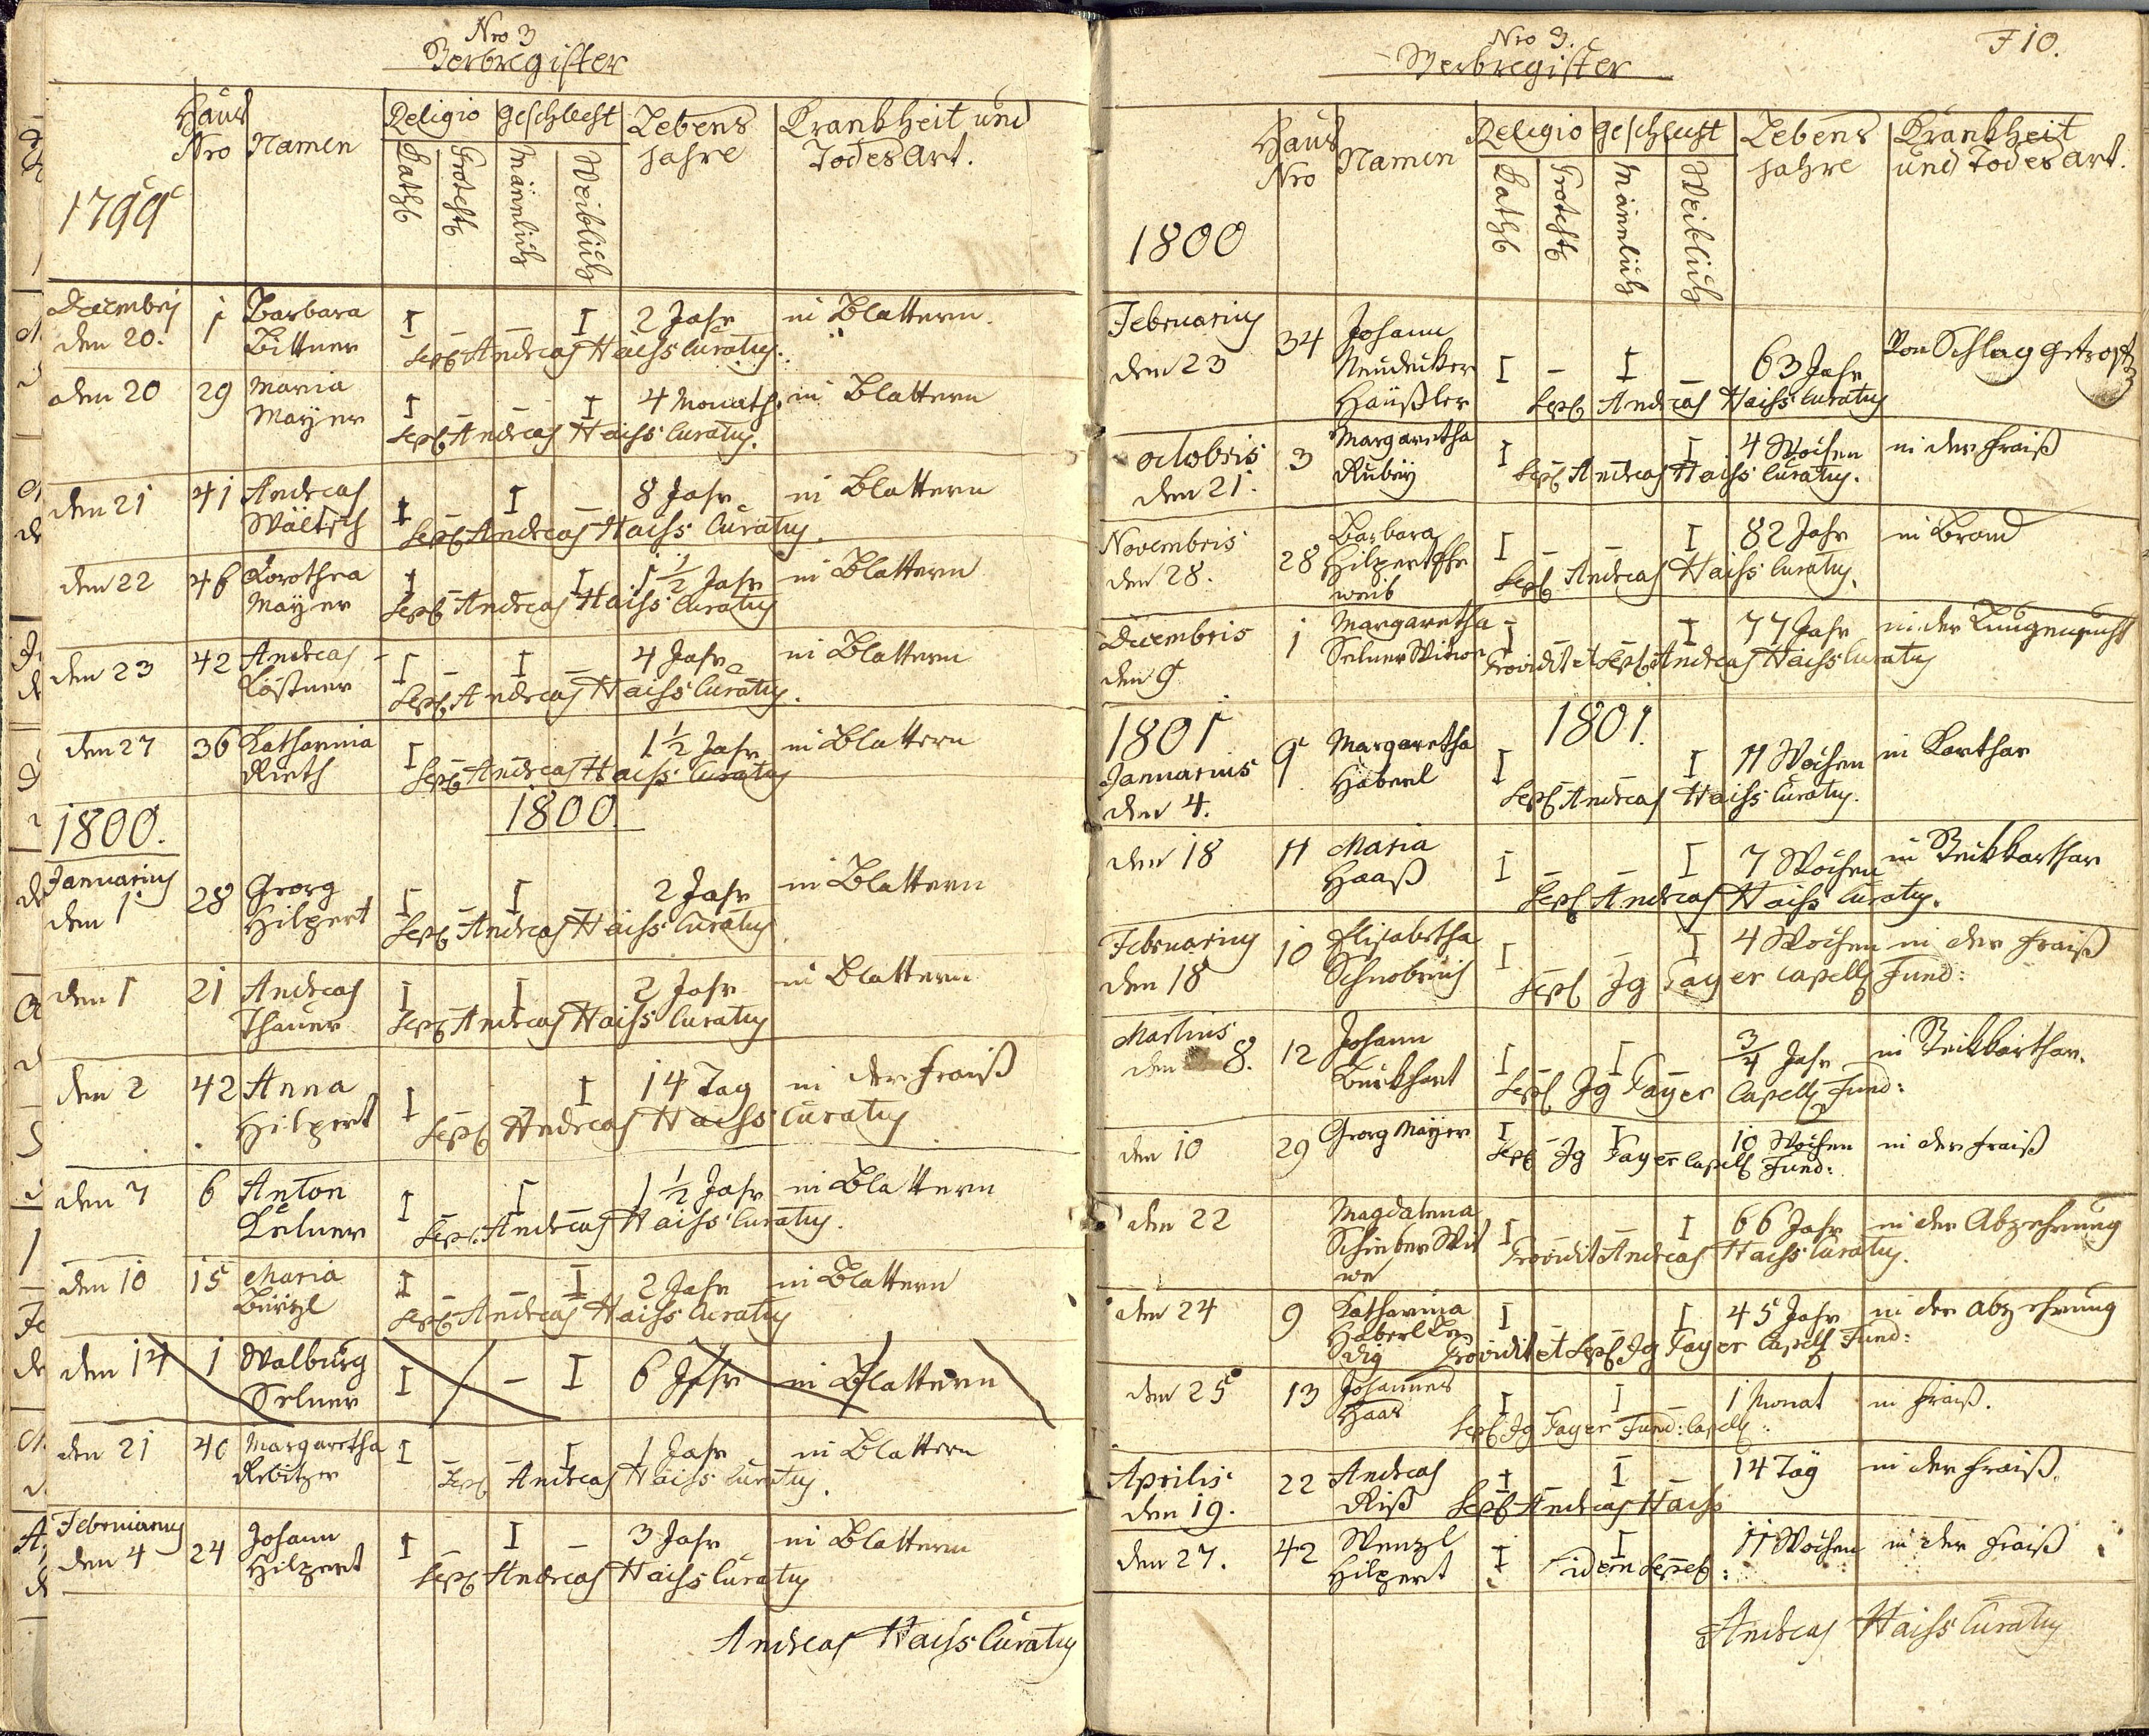 Nro 3
Sterbregister
1799
Haus Nro
Namen
Religio
Kathl
Protestl
geschlecht
Männlich
Weiblich
Lebens Jahre
Krankheit und Todes Art.
Decembrij den 20. 1 Barbara Bittner I – – I 2 Jahr in Blattern.
Sepl Andreas Haiss Curatus.
den 20 29 Maria Mayer I – – I 4 Monath. in Blattern
Sepl Andreas Haiss Curatus.
den 21 41 Andreas I – I – 8 Jahr in Blattern
Sepl Andreas Haiss Curatus.
den 22 46 Dorothea Mayer I – – I 1 1/2 Jahr in Blattern
Sepl Andreas Haiss Curatus
den 23 42 Andreas I – I – 4 Jahr in Blattern
Sepl Andreas Haiss Curatus.
den 27 36 Katharina Rieth I – – 1 1/2 Jahr in Blattern
Sepl Andreas Haiss Curatus
1800.
1800.
Januarius den 1 28 Georg Hilpert I – I – 2 Jahr in Blattern
Sepl Andreas Haiss Curatus
den 1 21 Andreas Thauer I – I – 2 Jahr in Blattern
Sepl Andreas Haiss Curatus
den 2 42 Anna Hilpert I – – I 14 Tag in der Fraiß
Sepl Andreas Haiss Curatus
den 7 6 Anton I – I – 1 1/2 Jahr in Blattern
Sepl. Andreas Haiss Curatus.
den 10 15 Maria I – – I 2 Jahr in Blattern
Sepl Andreas Haiss Curatus
den 14 1 Walburg Selner I – – I 6 Jahr in Blattern
den 21 40 Margaretha Rebitzer I – – I 1 Jahr in Blattern
Sepl Andreas Haiss Curatus.
Februarius den 4 24 Johann Hilpert I – I – 3 Jahr in Blattern
Sepl Andreas Haiss Curatus
Andreas Haiss Curatus
Nro 3.
Sterbregister
F 10.
1800
Haus Nro
Namen
Religio
Kathl
Protestl
geschlecht
Männlich
Weiblich
Lebens Jahre
Krankheit und Todes Art.
Februarius den 23 34 Johann Neudecker Häußler I – I – 63 Jahr Von Schlag getroffen
Sepl Andreas Haiss Curatus
Octobris den 21. 3 Margaretha I – – I 4 Wochen in der Fraiß
Sepl Andreas Haiss Curatus.
Novembris den 28. 28 Barbara Hilpert weib I – – I 82 Jahr in Brand
Sepl Andreas Haiss Curatus.
Decembris den 9 1 Margaretha Selner Witwe I – – I 77 Jahr in der Lungensucht
Providit et Sepl. Andreas Haiss Curatus
1801
1801.
Januarius den 4. 9 Margaretha Haberl I – – I 11 Wochen in Karthar
Sepl Andreas Haiss Curatus.
den 18 11 Maria Haaß I – – I 7 Wochen in Steckkarthar
Sepl Andreas Haiss Curatus.
Februarius den 18 10 Elisabetha I – – I 4 Wochen in der Fraiß
Sepl Jg Fayer Capell Fund:
Martius den 8. 12 Johann Burkhart I – I – 3/4 Jahr in Steckkarthar.
Sepl Jg Fayer Capell Fund:
den 10 29 Georg Mayer I – I – 10 Wochen in der Fraiß
Sepl Jg Fayer Capell Fund:
den 22 Magdalena Witwe I – – I 66 Jahr in der Abzehrung
Providit Andreas Haiss Curatus.
den 24 9 Katharina Haberl Ledig I – – I 45 Jahr in der Abzehrung
Providit et Sepl Jg Fayer Capell Fund:
den 25 13 Johannes Haas I – I – 1 Monat in Fraiß.
Sepl Jg Fayer Fund: Capell
Aprilis den 19. 22 Andreas Riß I – I – 14 Tag in der Fraiß.
Sepl Andreas Haiss
den 27. 42 Wenzl Hilpert I – I 11 Wochen in der Fraiß
idem Sepel:
Andreas Haiss Curatus